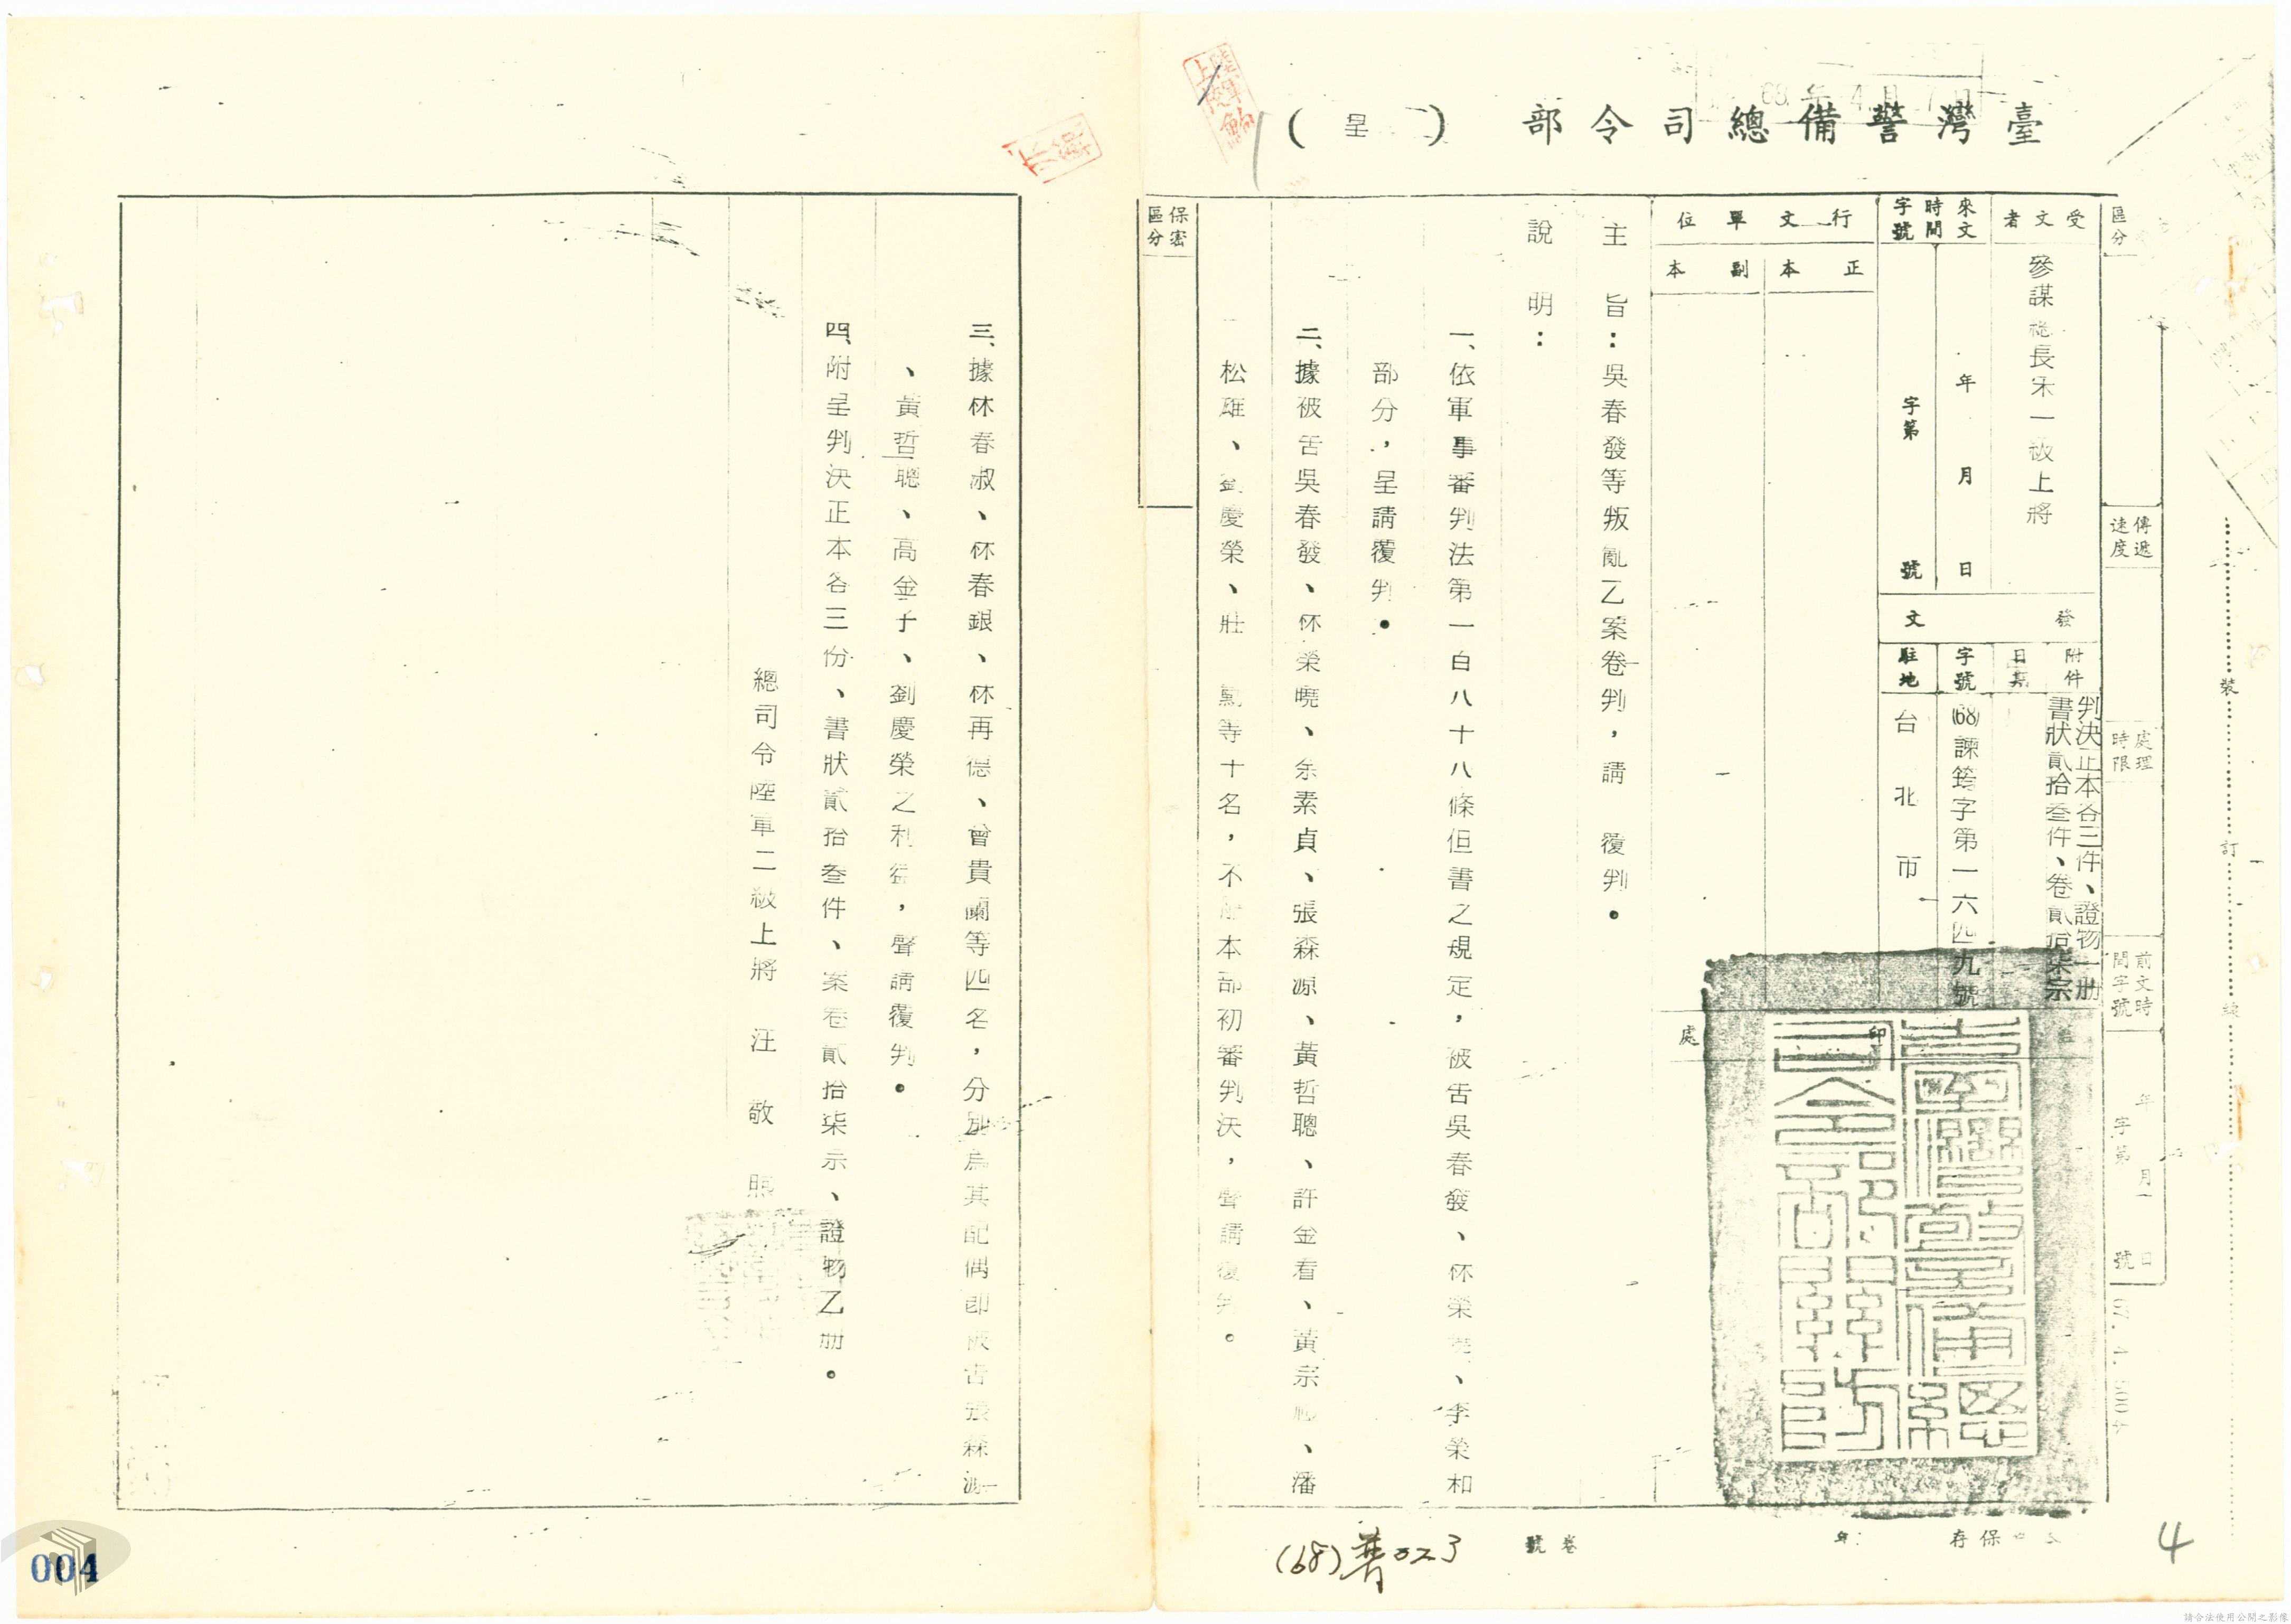 臺灣警備總司令部（呈）
68年4月7日
區分
受文者
參謀總長宋一級上將
來文
時間
字號
年 月 日
字第 號
行文單位
正本
副本
傳遞速度
處理時限
前文時間字號
年 月 日
字第 號
發文
附件
判決正本各三件、證物一册
書狀貳拾叁件、卷貳拾柒宗
日期
字號
(68)諫筠字第一六四九號
駐地
台北市
印
處
主旨：吳春發等叛亂乙案卷判，請 覆判。
說明：
一、依軍事審判法第一百八十八條但書之規定，被告吳春發、林榮曉、李榮和
部分，呈請覆判。
二、據被告吳春發、林榮曉、余素貞、張森源、黃哲聰、許金看、黃宗 、潘
松雄、劉慶榮、莊 勳等十名，不服本部初審判決，聲請復判。
保密區分
三、據林春淑、林春銀、林再德、曾貴蘭等四名，分別為其配偶即被告張森源
、黃哲聰、高金子、劉慶榮之利益，聲請覆判。
四、附呈判決正本各三份、書狀貳拾叁件、案卷貳拾柒宗、證物乙册。
總司令陸軍二級上將 汪敬煦
臺灣警備總司令部關防
裝 訂 線
保存 年
卷號
(68) 023
4
004
請合法使用公開之影像